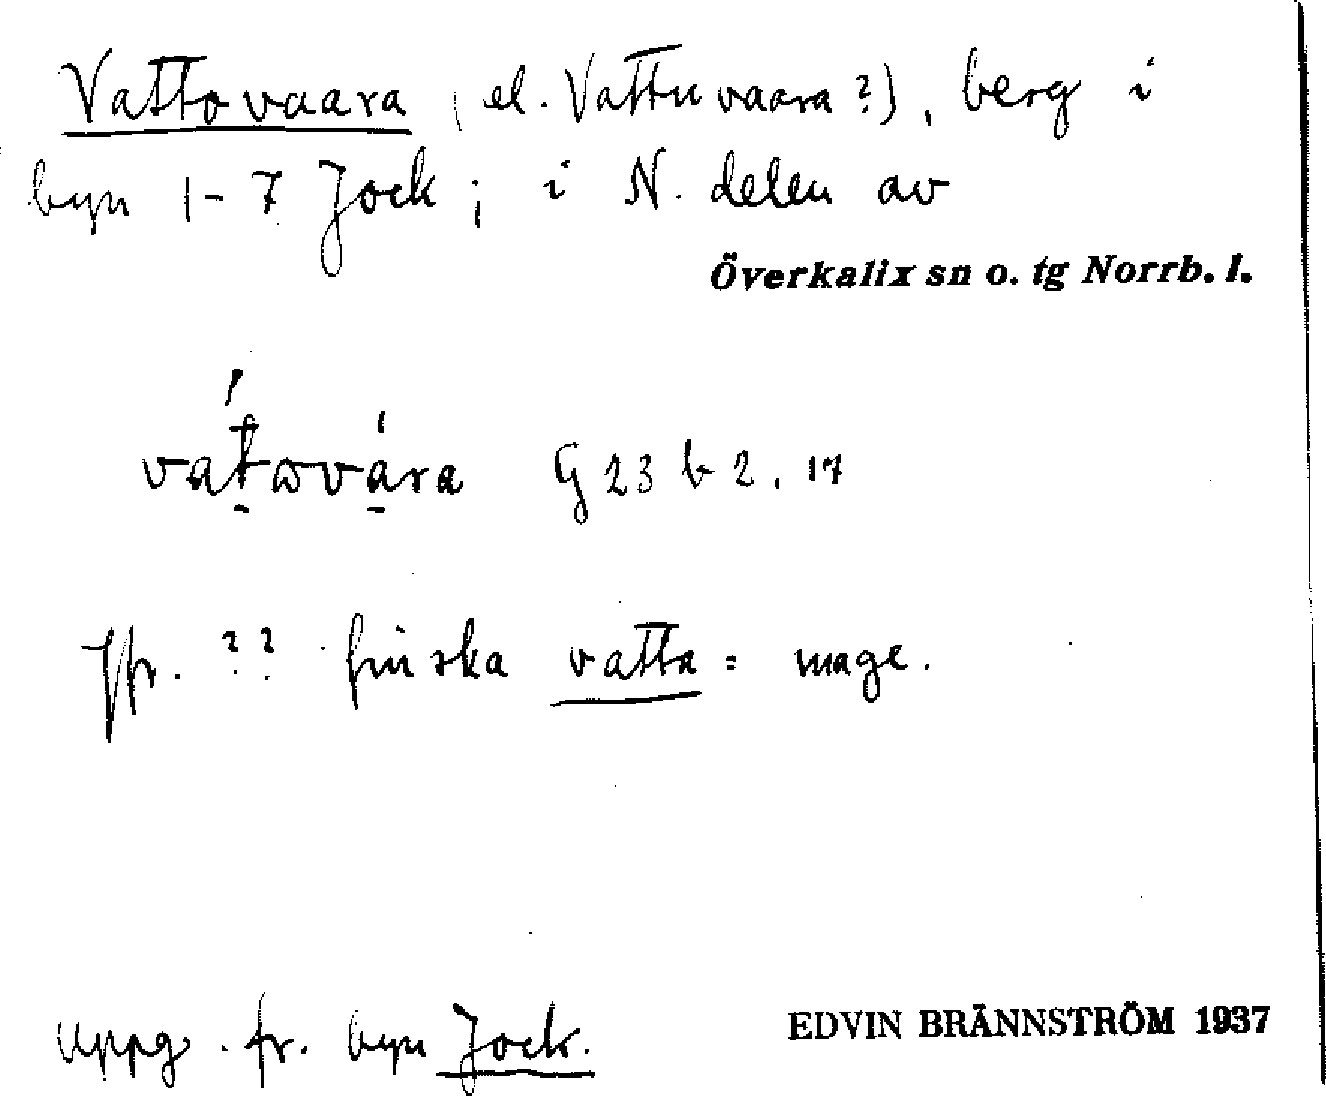 Vattovaara (el. Vattuvaara?), berg i
byn 1-7 Jock; i N. delen av
Överkalix sn o. tg Norrb. l.
G 23 b 2, 17
Jfr. ?? finska vatta = mage.
Uppg. fr. byn Jock.
EDVIN BRÄNNSTRÖM 1937